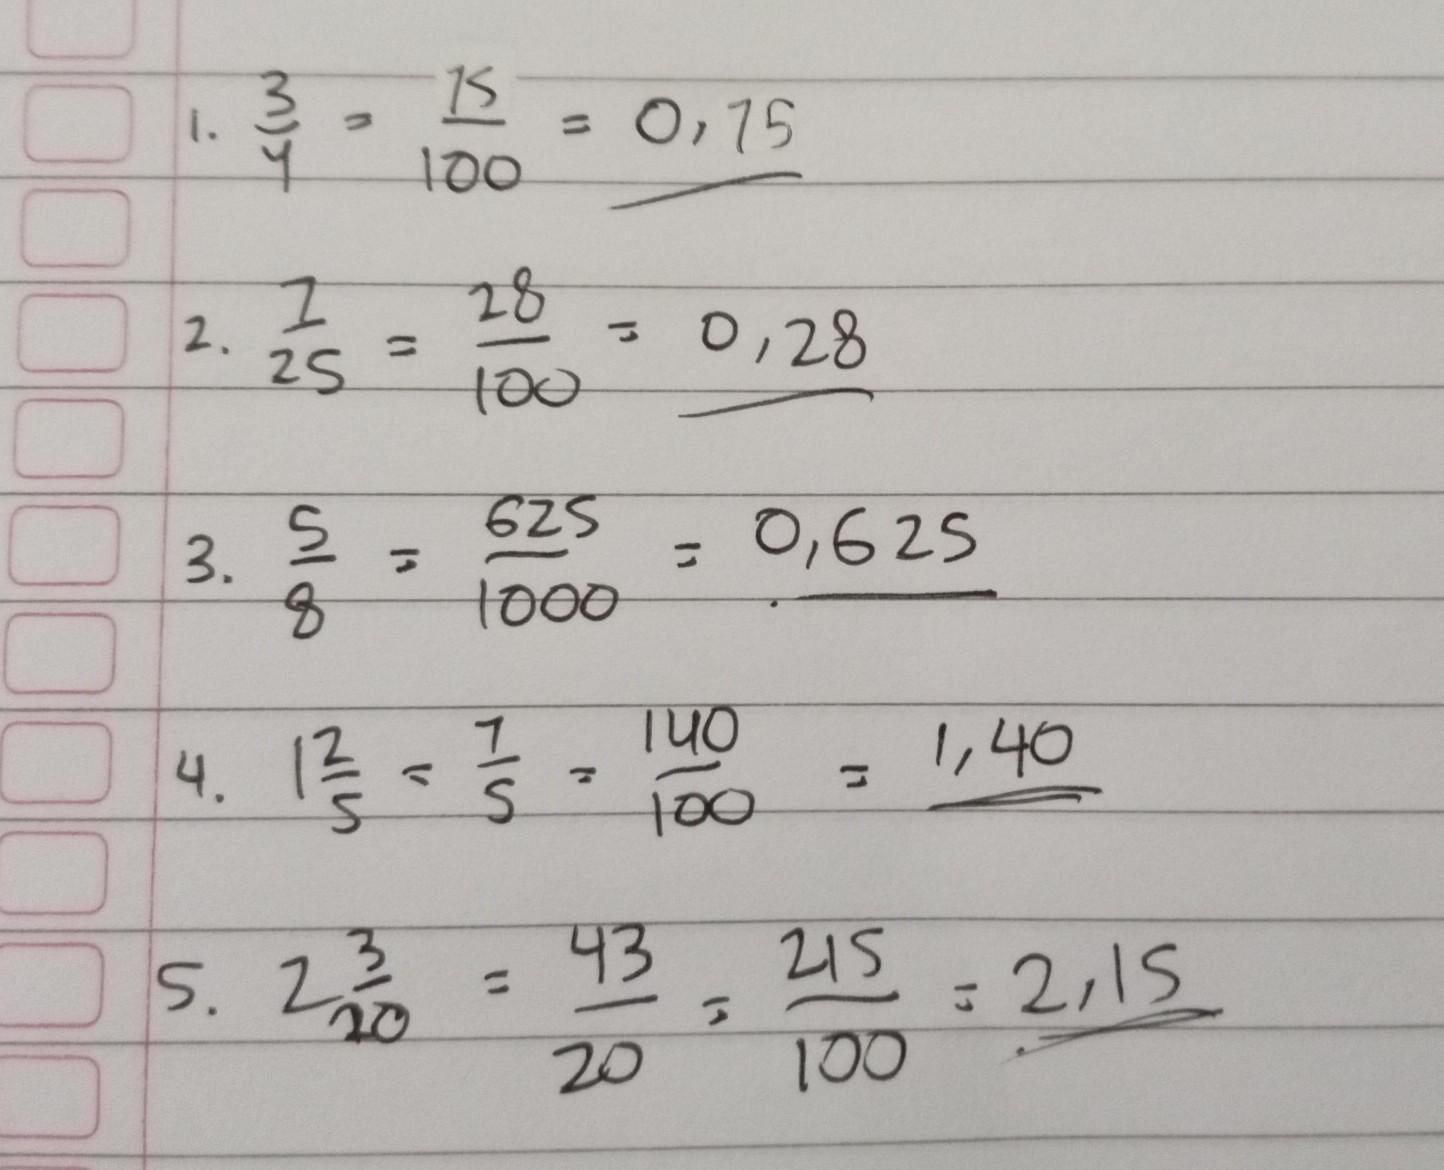 1. 3/4 = 75/100 = 0,75
2. 7/25 = 28/100 = 0,28
3. 5/8 = 625/1000 = 0,625
4. 1 2/5 = 7/5 = 140/100 = 1,40
5. 2 3/20 = 43/20 = 215/100 = 2,15